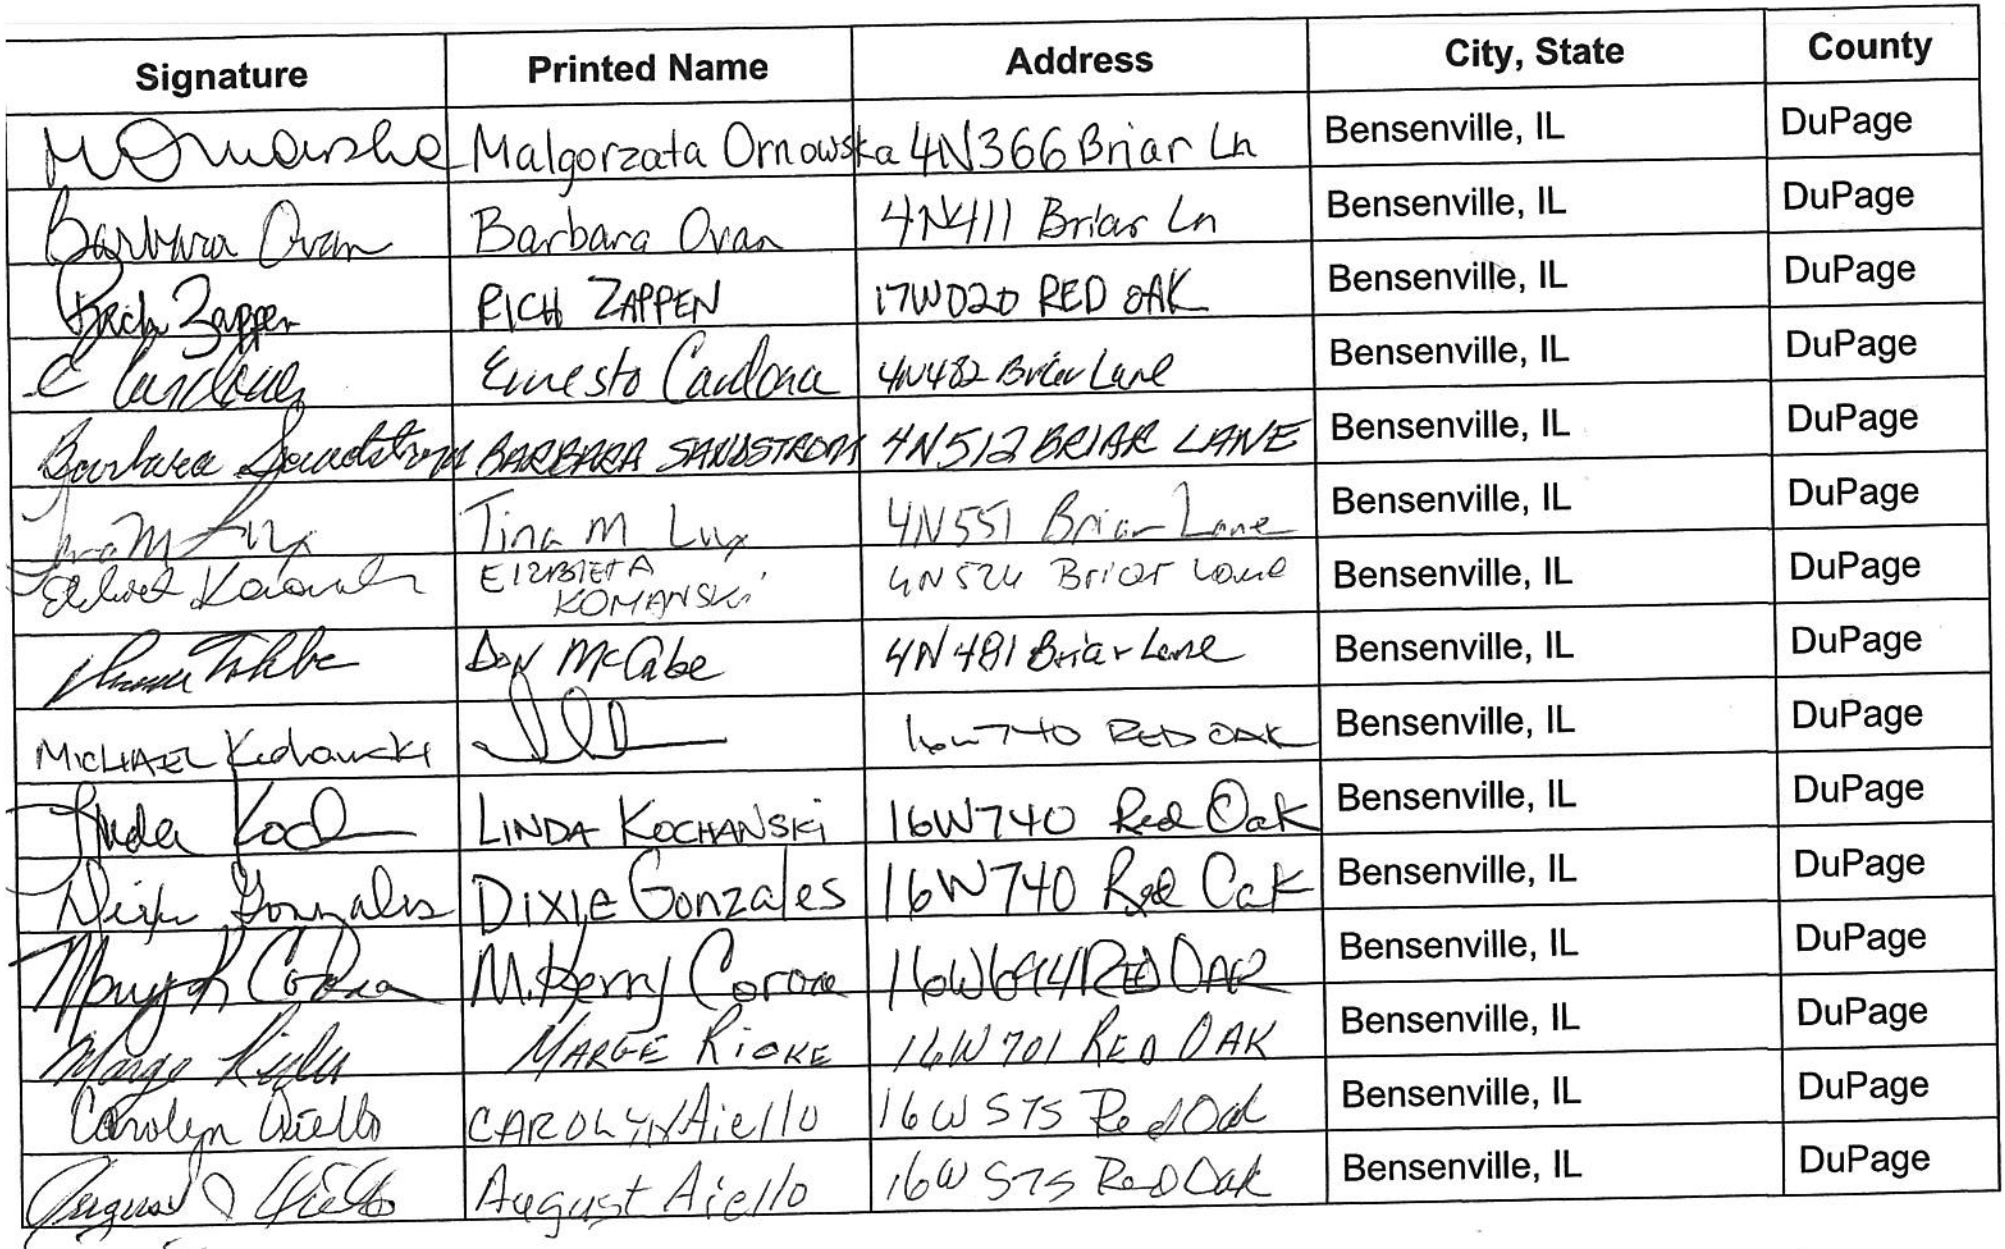 Signature Printed Name Address City, State County
M Ornowska Malgorzata Ornowska 4N366 Briar Ln Bensenville, IL DuPage
Barbara Ovan Barbara Ovan 4N411 Briar Ln Bensenville, IL DuPage
Rich Zappen RICH ZAPPEN 17W020 RED OAK Bensenville, IL DuPage
E Cardona Ernesto Cardona 4N482 Briar Lane Bensenville, IL DuPage
Barbara Sandstrom BARBARA SANDSTROM 4N512 BRIAR LANE Bensenville, IL DuPage
Tina M Lux Tina M Lux 4N551 Briar Lane Bensenville, IL DuPage
ELZBIETA Briar Lane Bensenville, IL DuPage
KOMANSKI
Don McCabe 4N481 Briar Lane Bensenville, IL DuPage
MICHAEL 16W740 RED OAK Bensenville, IL DuPage
Linda LINDA KOCHANSKI 16W740 Red Oak Bensenville, IL DuPage
Dixie Gonzales DIXIE Gonzales 16W740 Red Oak Bensenville, IL DuPage
M. Kerry RED OAK Bensenville, IL DuPage
Marge MARGE 16W701 RED OAK Bensenville, IL DuPage
Carolyn Aiello CAROLYN Aiello 16W575 Red Oak Bensenville, IL DuPage
August Aiello August Aiello 16W575 Red Oak Bensenville, IL DuPage